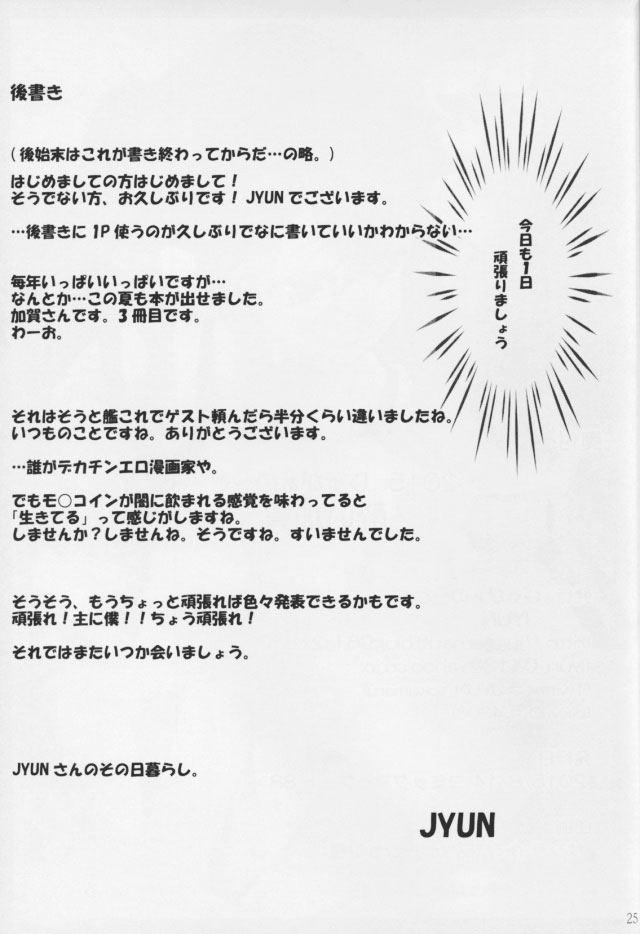 後書き
今日も1日
頑張りましょう
(後始末はこれが書き終わってからだ…の略。)
はじめましての方はじめまして!
そうでない方、お久しぶりです! JYUNでございます。
…後書きに 1P 使うのが久しぶりでなに書いていいかわからない…
毎年いっぱいいっぱいですが…
なんとか…この夏も本が出せました。
加賀さんです。3冊目です。
わーお。
それはそうと艦これでゲスト頼んだら半分くらい違いましたね。
いつものことですね。ありがとうございます。
…誰がデカチンエロ漫画家や。
でもモ○コインが闇に飲まれる感覚を味わってると
「生きてる」って感じがしますね。
しませんか?しませんね。そうですね。すいませんでした。
そうそう、もうちょっと頑張れば色々発表できるかもです。
頑張れ!主に僕!!ちょう頑張れ!
それではまたいつか会いましょう。
JYUNさんのその日暮らし。
JYUN
25